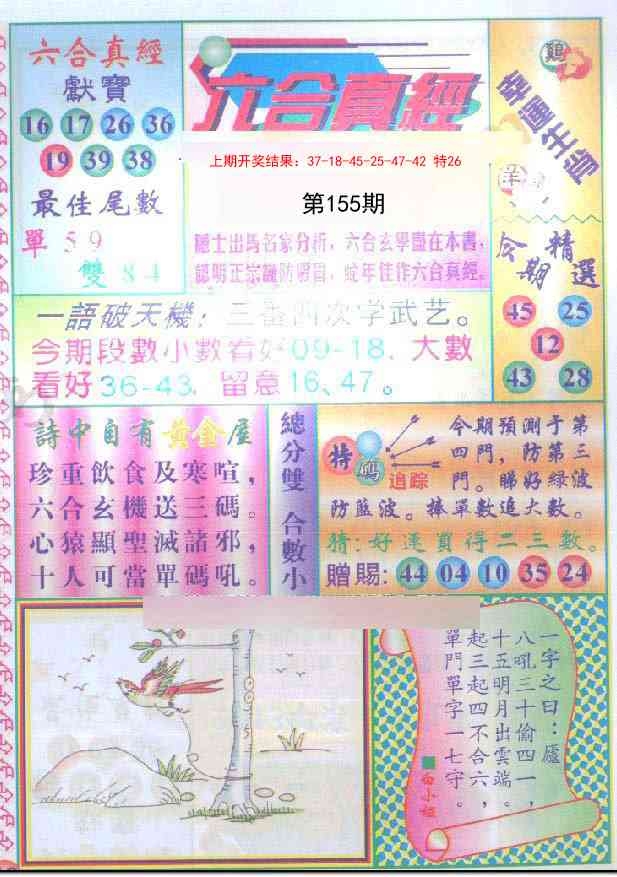 六合真經
獻寶
16 17 26 36
19 39 38
最佳尾數
單 59
雙 84
六合真經
上期开奖结果：37-18-45-25-47-42 特26
第155期
隱士出馬名家分析，六合玄學盡在本書，
認明正宗謹防假冒，蛇年佳作六合真經。
鷄
幸運生肖
羊
今期精選
45 25
12
43 28
一語破天機：三番四次学武艺。
今期段數小數看好09-18、大數
看好36-43、留意16、47。
詩中自有黄金屋
珍重飲食及寒喧，
六合玄機送三碼。
心猿顯聖滅諸邪，
十人可當單碼吼。
總分雙 合數小
特碼
追踪
今期預測于第
四門，防第三
門。睇好綠波
防藍波。捧單數追大數。
猜：好運買得二三數。
贈賜：44 04 10 35 24
一字之曰：廬
八吼三十偷四一，
十五明月出雲端。
起三起四不合六，
單門單字一七守。